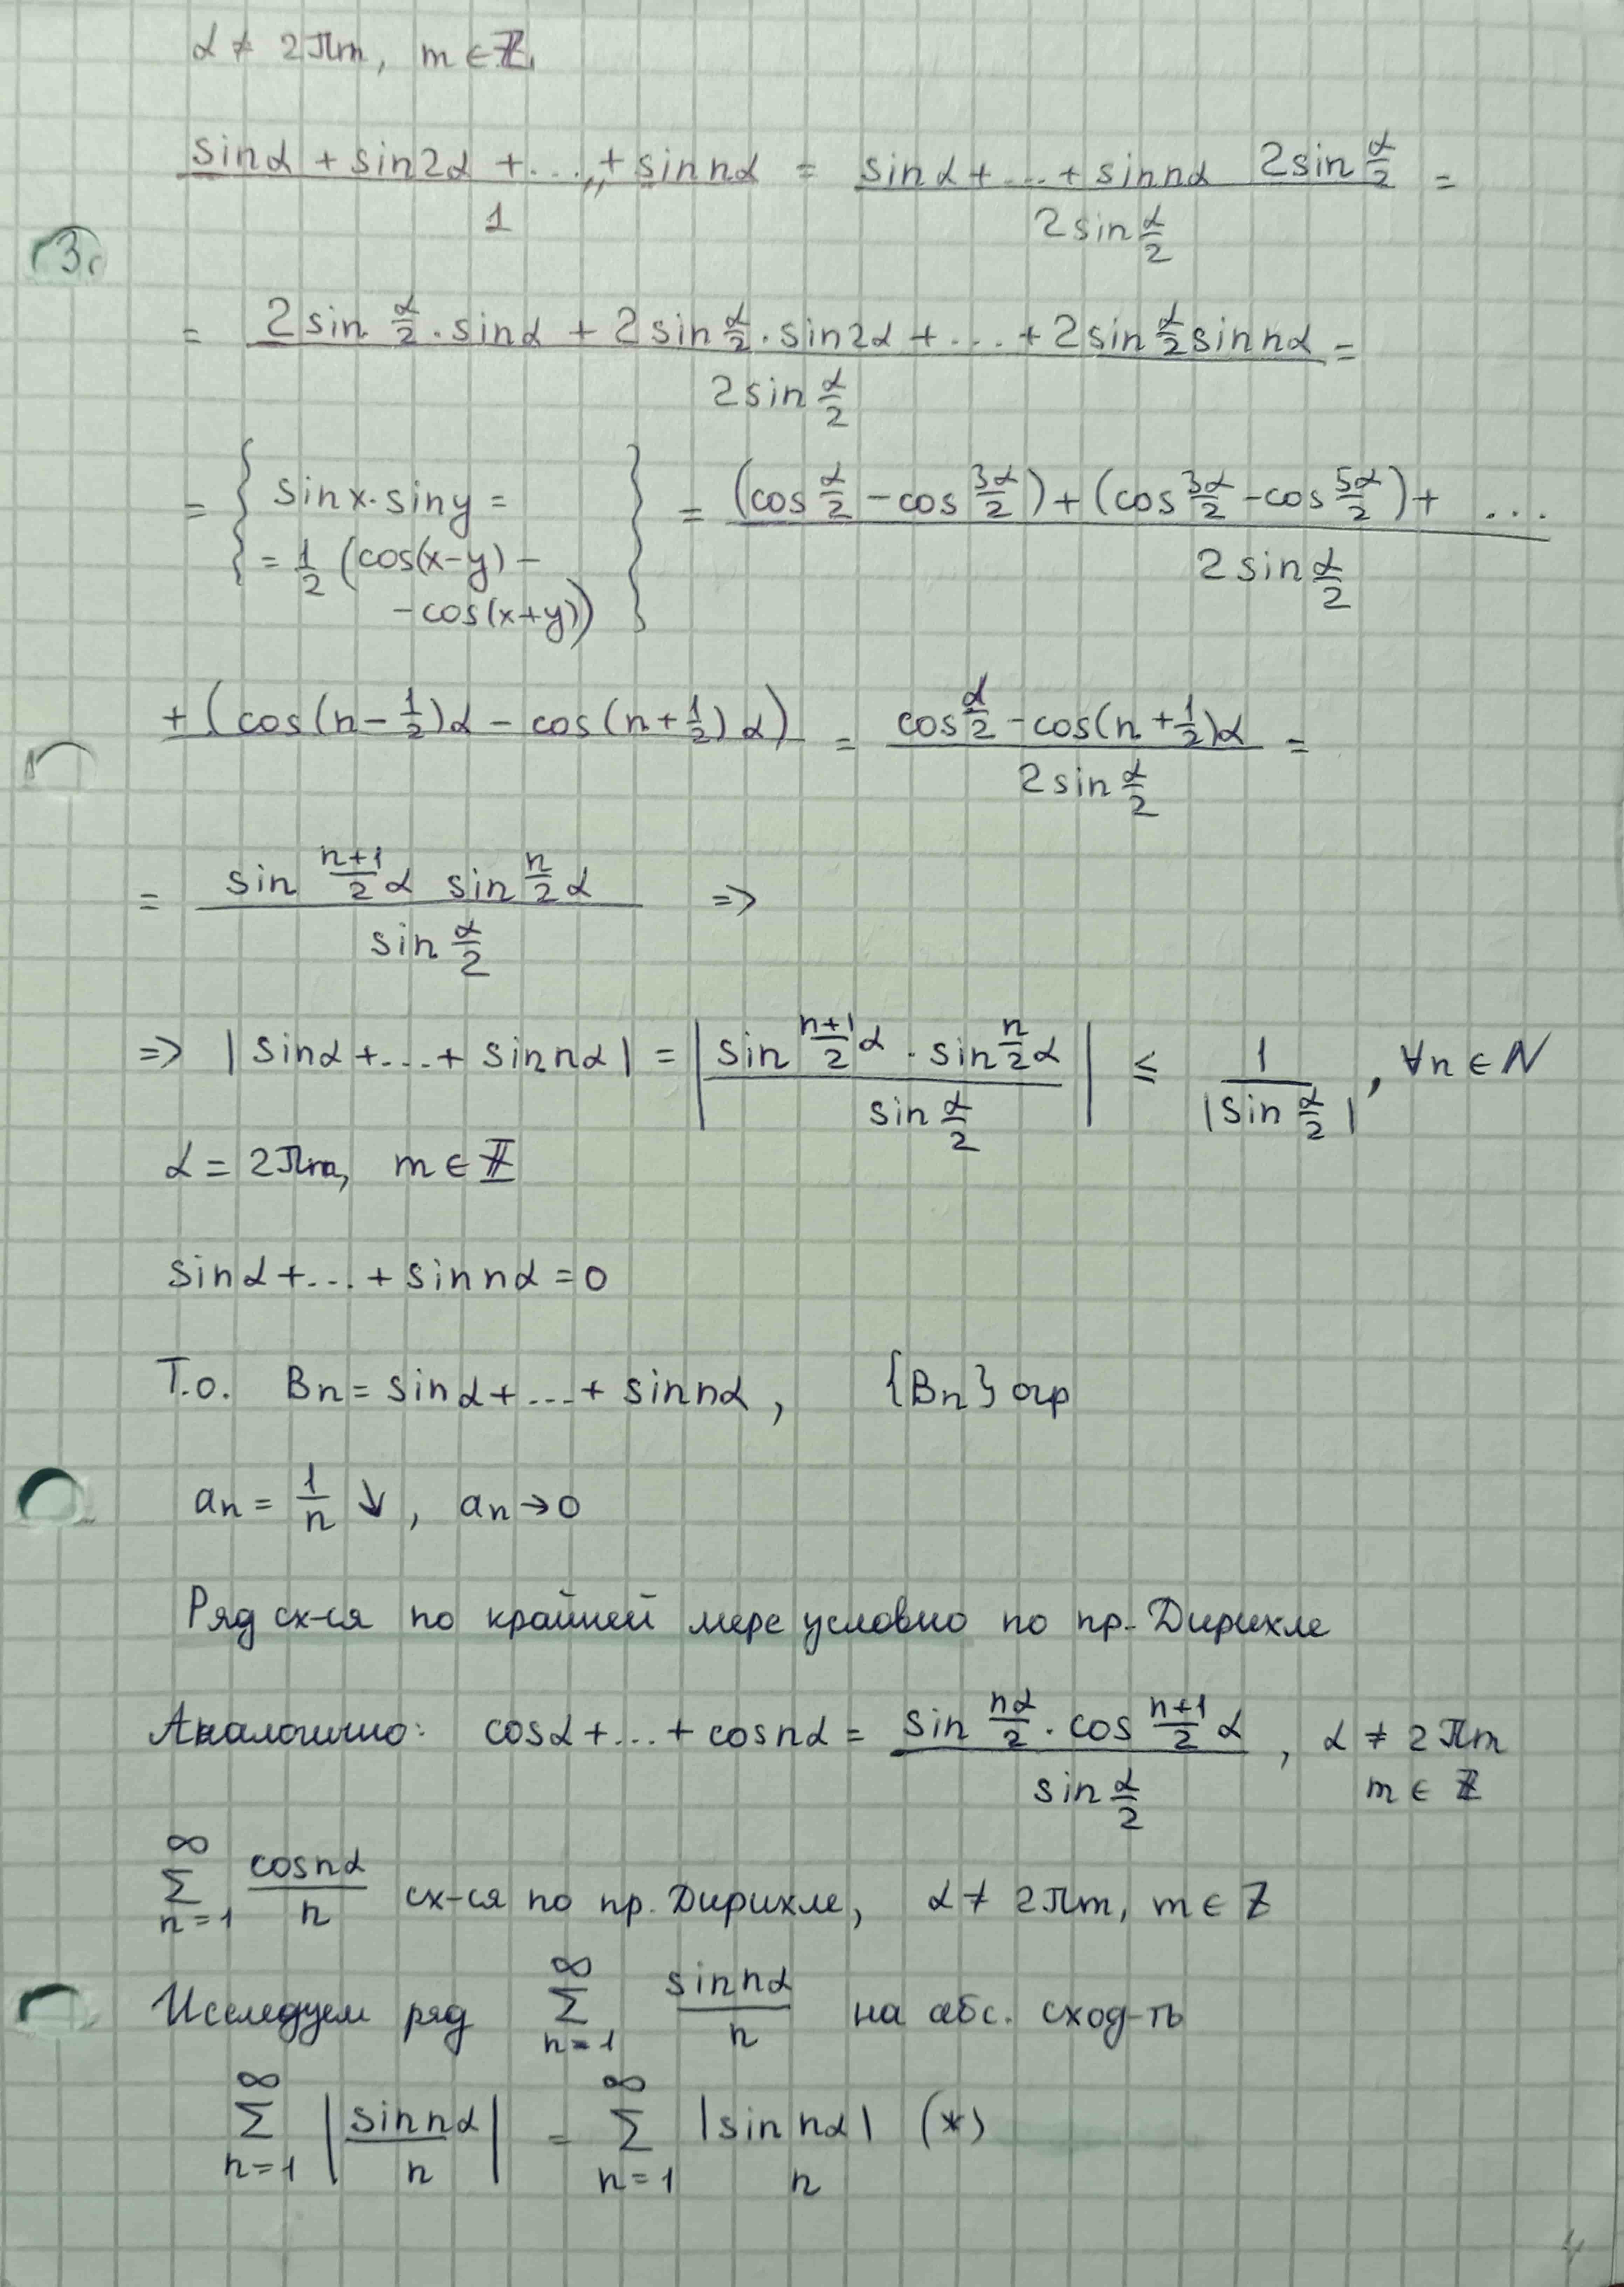 α ≠ 2πm, m ∈ ℤ
sinα + sin2α + ... + sin nα / 1 = sinα + ... + sin nα 2sin α/2 / 2sin α/2 =
3.
= 2sin α/2 · sinα + 2sin α/2 · sin2α + ... + 2sin α/2 sin nα / 2sin α/2 =
= { sin x · sin y = = 1/2 (cos(x-y) - - cos(x+y)) } = (cos α/2 - cos 3α/2) + (cos 3α/2 - cos 5α/2) + ... / 2 sin α/2
+ (cos(n - 1/2)α - cos(n + 1/2)α) = cos α/2 - cos(n + 1/2)α / 2 sin α/2 =
= sin n+1/2 α sin n/2 α / sin α/2 =>
=> |sinα + ... + sin nα| = | sin n+1/2 α · sin n/2 α / sin α/2 | ≤ 1 / |sin α/2|, ∀n ∈ N
α = 2πm, m ∈ ℤ
sinα + ... + sin nα = 0
Т.о. Bn = sinα + ... + sin nα, {Bn} огр
an = 1/n ↓, an → 0
Ряд сх-ся по крайней мере условно по пр. Дирихле
Аналогично: cosα + ... + cos nα = sin nα/2 · cos n+1/2 α / sin α/2, α ≠ 2πm
m ∈ ℤ
∞ Σ n=1 cos nα / n сх-ся по пр. Дирихле, α ≠ 2πm, m ∈ ℤ
Исследуем ряд ∞ Σ n=1 sin nα / n на абс. сход-ть
∞ Σ n=1 | sin nα / n | = ∞ Σ n=1 |sin nα| n (*)
4